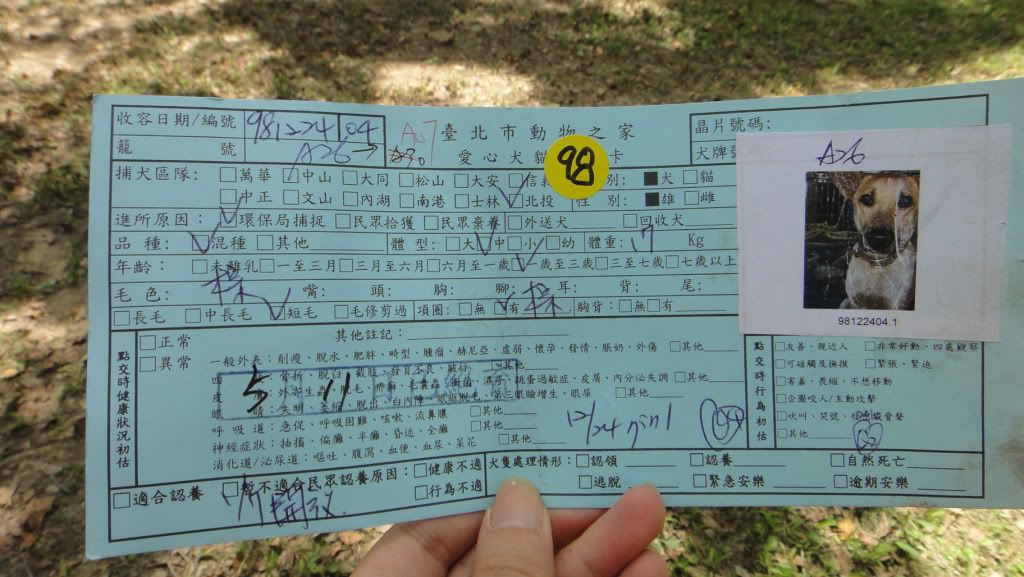 收容日期/編號 981224 04 臺北市動物之家 晶片號碼:
籠 號 A26 → A07 愛心犬貓 卡 犬牌號
98
A26
捕犬區隊: □萬華 □中山 □大同 □松山 □大安 □信義 別: ■犬 □貓
□中正 □文山 □內湖 □南港 □士林 □北投 性 別: ■雄 □雌
進所原因: □環保局捕捉 □民眾拾獲 □民眾棄養 □外送犬 □回收犬
品 種: □混種 □其他 體 型: □大 □中 □小 □幼 體重: 17 Kg
年齡: □未離乳 □一至三月 □三月至六月 □六月至一歲 □一歲至三歲 □三至七歲 □七歲以上
毛 色: 嘴: 頭: 胸: 腳: 耳: 背: 尾:
□長毛 □中長毛 □短毛 □毛修剪過 項圈: □無 □有 胸背: □無 □有
98122404.1
點交時健康狀況初估
□正常
□異常
其他註記:
一般外表: 削瘦、脫水、肥胖、畸型、腫瘤、赫尼亞、虛弱、懷孕、發情、脹奶、外傷 □其他
四 骨折、脫臼、截肢、發育不良、跛行 □其他
皮 外寄生蟲、脫毛、疥癬、毛囊蟲、黴菌、濕疹、跳蚤過敏症、皮屑、內分泌失調 □其他
眼 睛: 失明、萎縮、脫出、白內障、眼瞼脫毛、第三眼瞼增生、眼屎 □其他
呼吸道: 急促、呼吸困難、咳嗽、流鼻膿 □其他
神經症狀: 抽搐、偏癱、半癱、昏迷、全癱 □其他
消化道/泌尿道: 嘔吐、腹瀉、血便、血尿、菜花 □其他
5 11
12/24
點交時行為初估
□友善、親近人 □非常好動、四處觀察
□可碰觸及撫摸 □緊張、緊迫
□害羞、畏縮、不想移動
□企圖咬人/主動攻擊
□吠叫、哭號、低聲
□其他
□適合認養 □暫不適合民眾認養原因: □健康不適
□行為不適
犬隻處理情形: □認領 □認養 □自然死亡
□逃脫 □緊急安樂 □逾期安樂